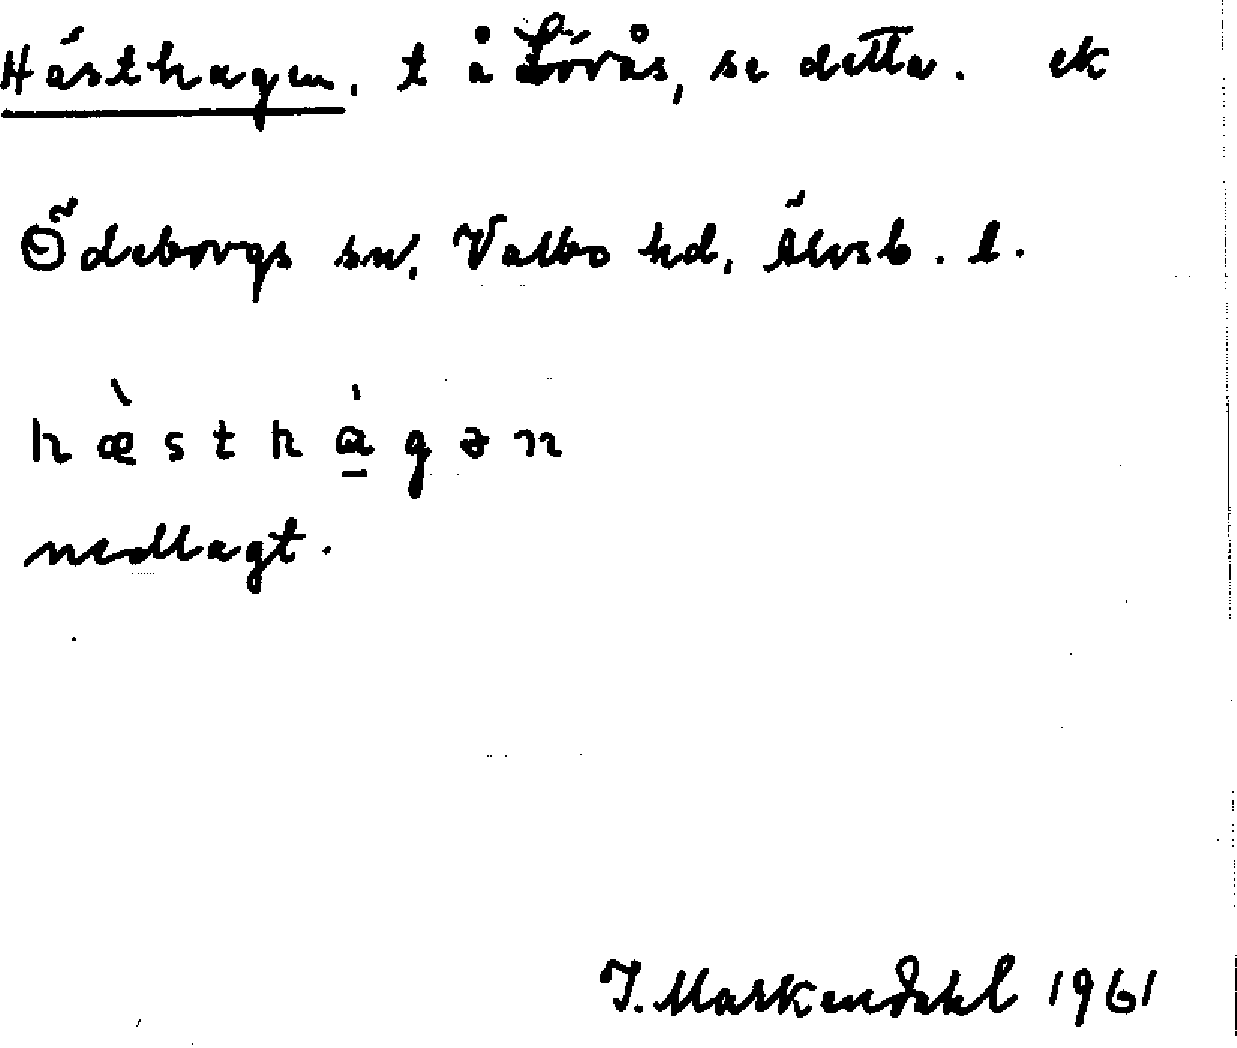 Hästhagen, t å Lövås, se detta. ek
Ödeborgs sn, Valbo hd, Älvsb. l.
hæ̀sthȧ̱gən
nedlagt.
I. Markendahl 1961